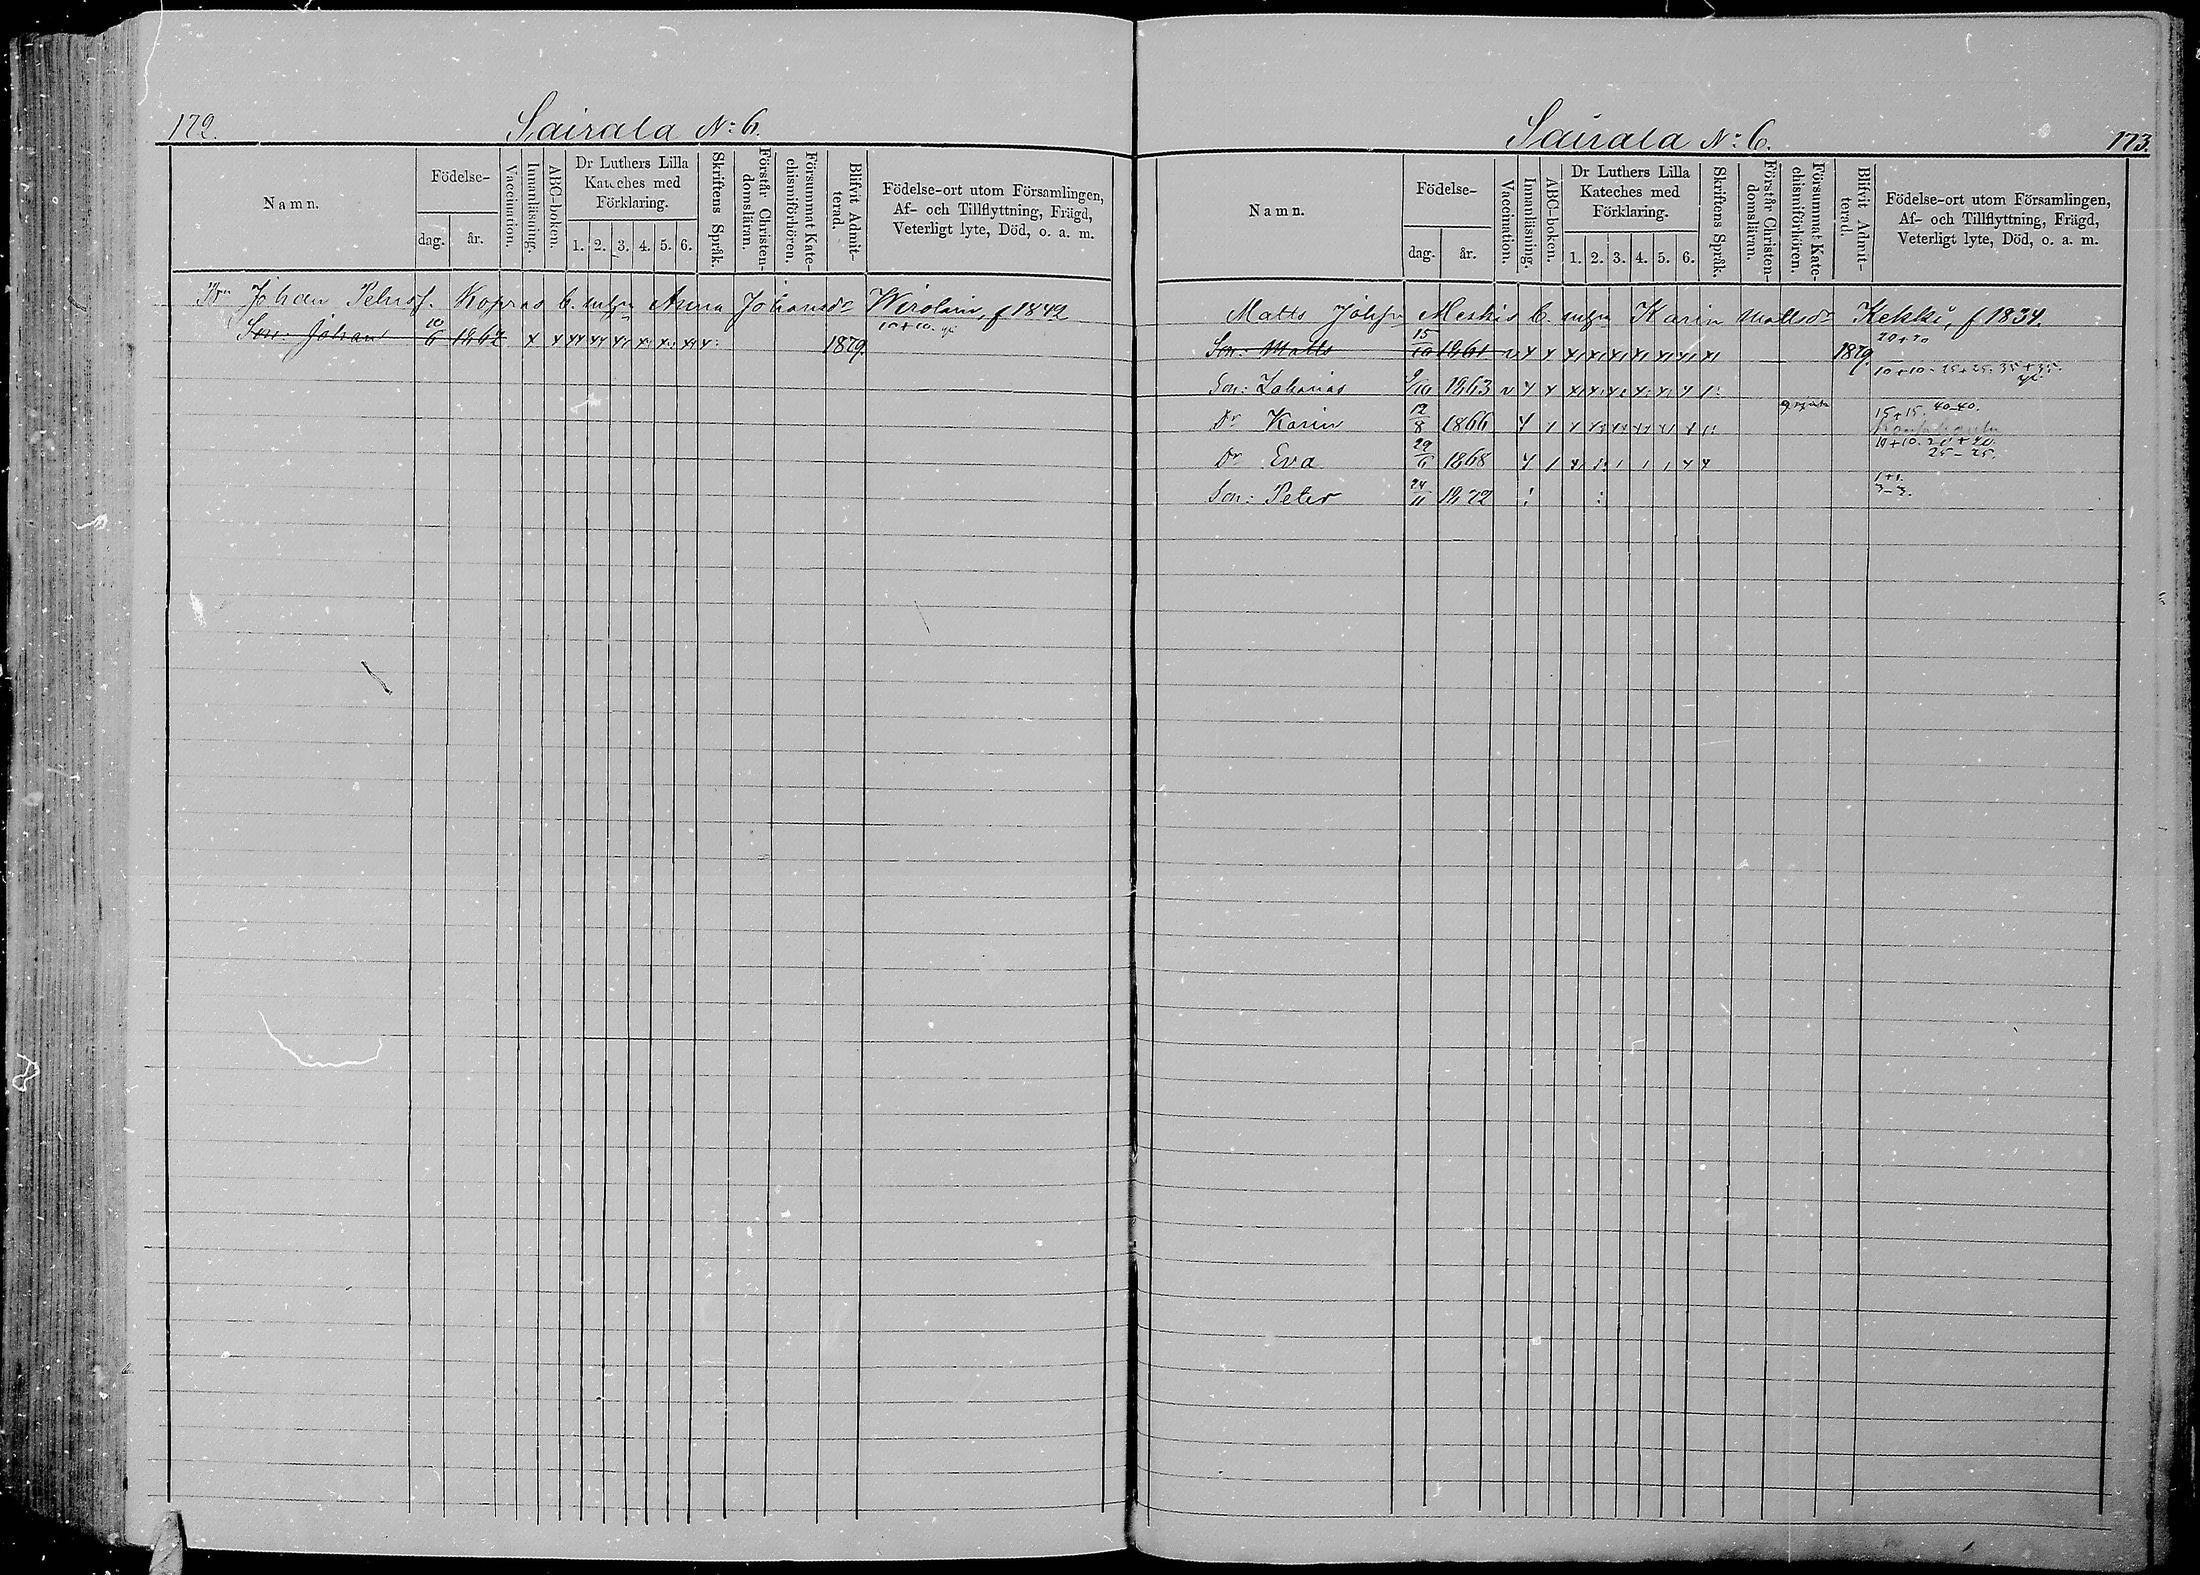 172.
Sairala No: 6.
Namn.
Födelse-
dag.
år.
Vaccination.
Innanläsning.
ABC-boken.
Dr Luthers Lilla
Kateches med
Förklaring.
1. 2. 3. 4. 5. 6.
Skriftens Språk.
Förstår Christen-
domsläran.
Försummat Kate-
chismiförhören.
Blifvit Admit-
terad.
Födelse-ort utom Församlingen,
Af- och Tillflyttning, Frägd,
Veterligt lyte, Död, o. a. m.
Johan Petersf. Kopras Anna Johansdr Wirolain, f 1842
Son: Johan 10/6 1862 1879. 10+10.
Sairala No: 6.
173.
Namn.
Födelse-
dag.
år.
Vaccination.
Innanläsning.
ABC-boken.
Dr Luthers Lilla
Kateches med
Förklaring.
1. 2. 3. 4. 5. 6.
Skriftens Språk.
Förstår Christen-
domsläran.
Försummat Kate-
chismiförhören.
Blifvit Admit-
terad.
Födelse-ort utom Församlingen,
Af- och Tillflyttning, Frägd,
Veterligt lyte, Död, o. a. m.
Matts Johsn Meskis Karin Mattsdr Kekki, f 1834.
Son: Matts 15/10 1861 1879. 20+20
Son: Zakarias 1863 10+10 - 25+25. 35+35.
Dr Karin 12/8 1866 15+15. 40-40.
Dr Eva 29/6 1868 10+10. 20+20. 25-25.
Son: Peter 24/11 1872 1+1. 3-3.